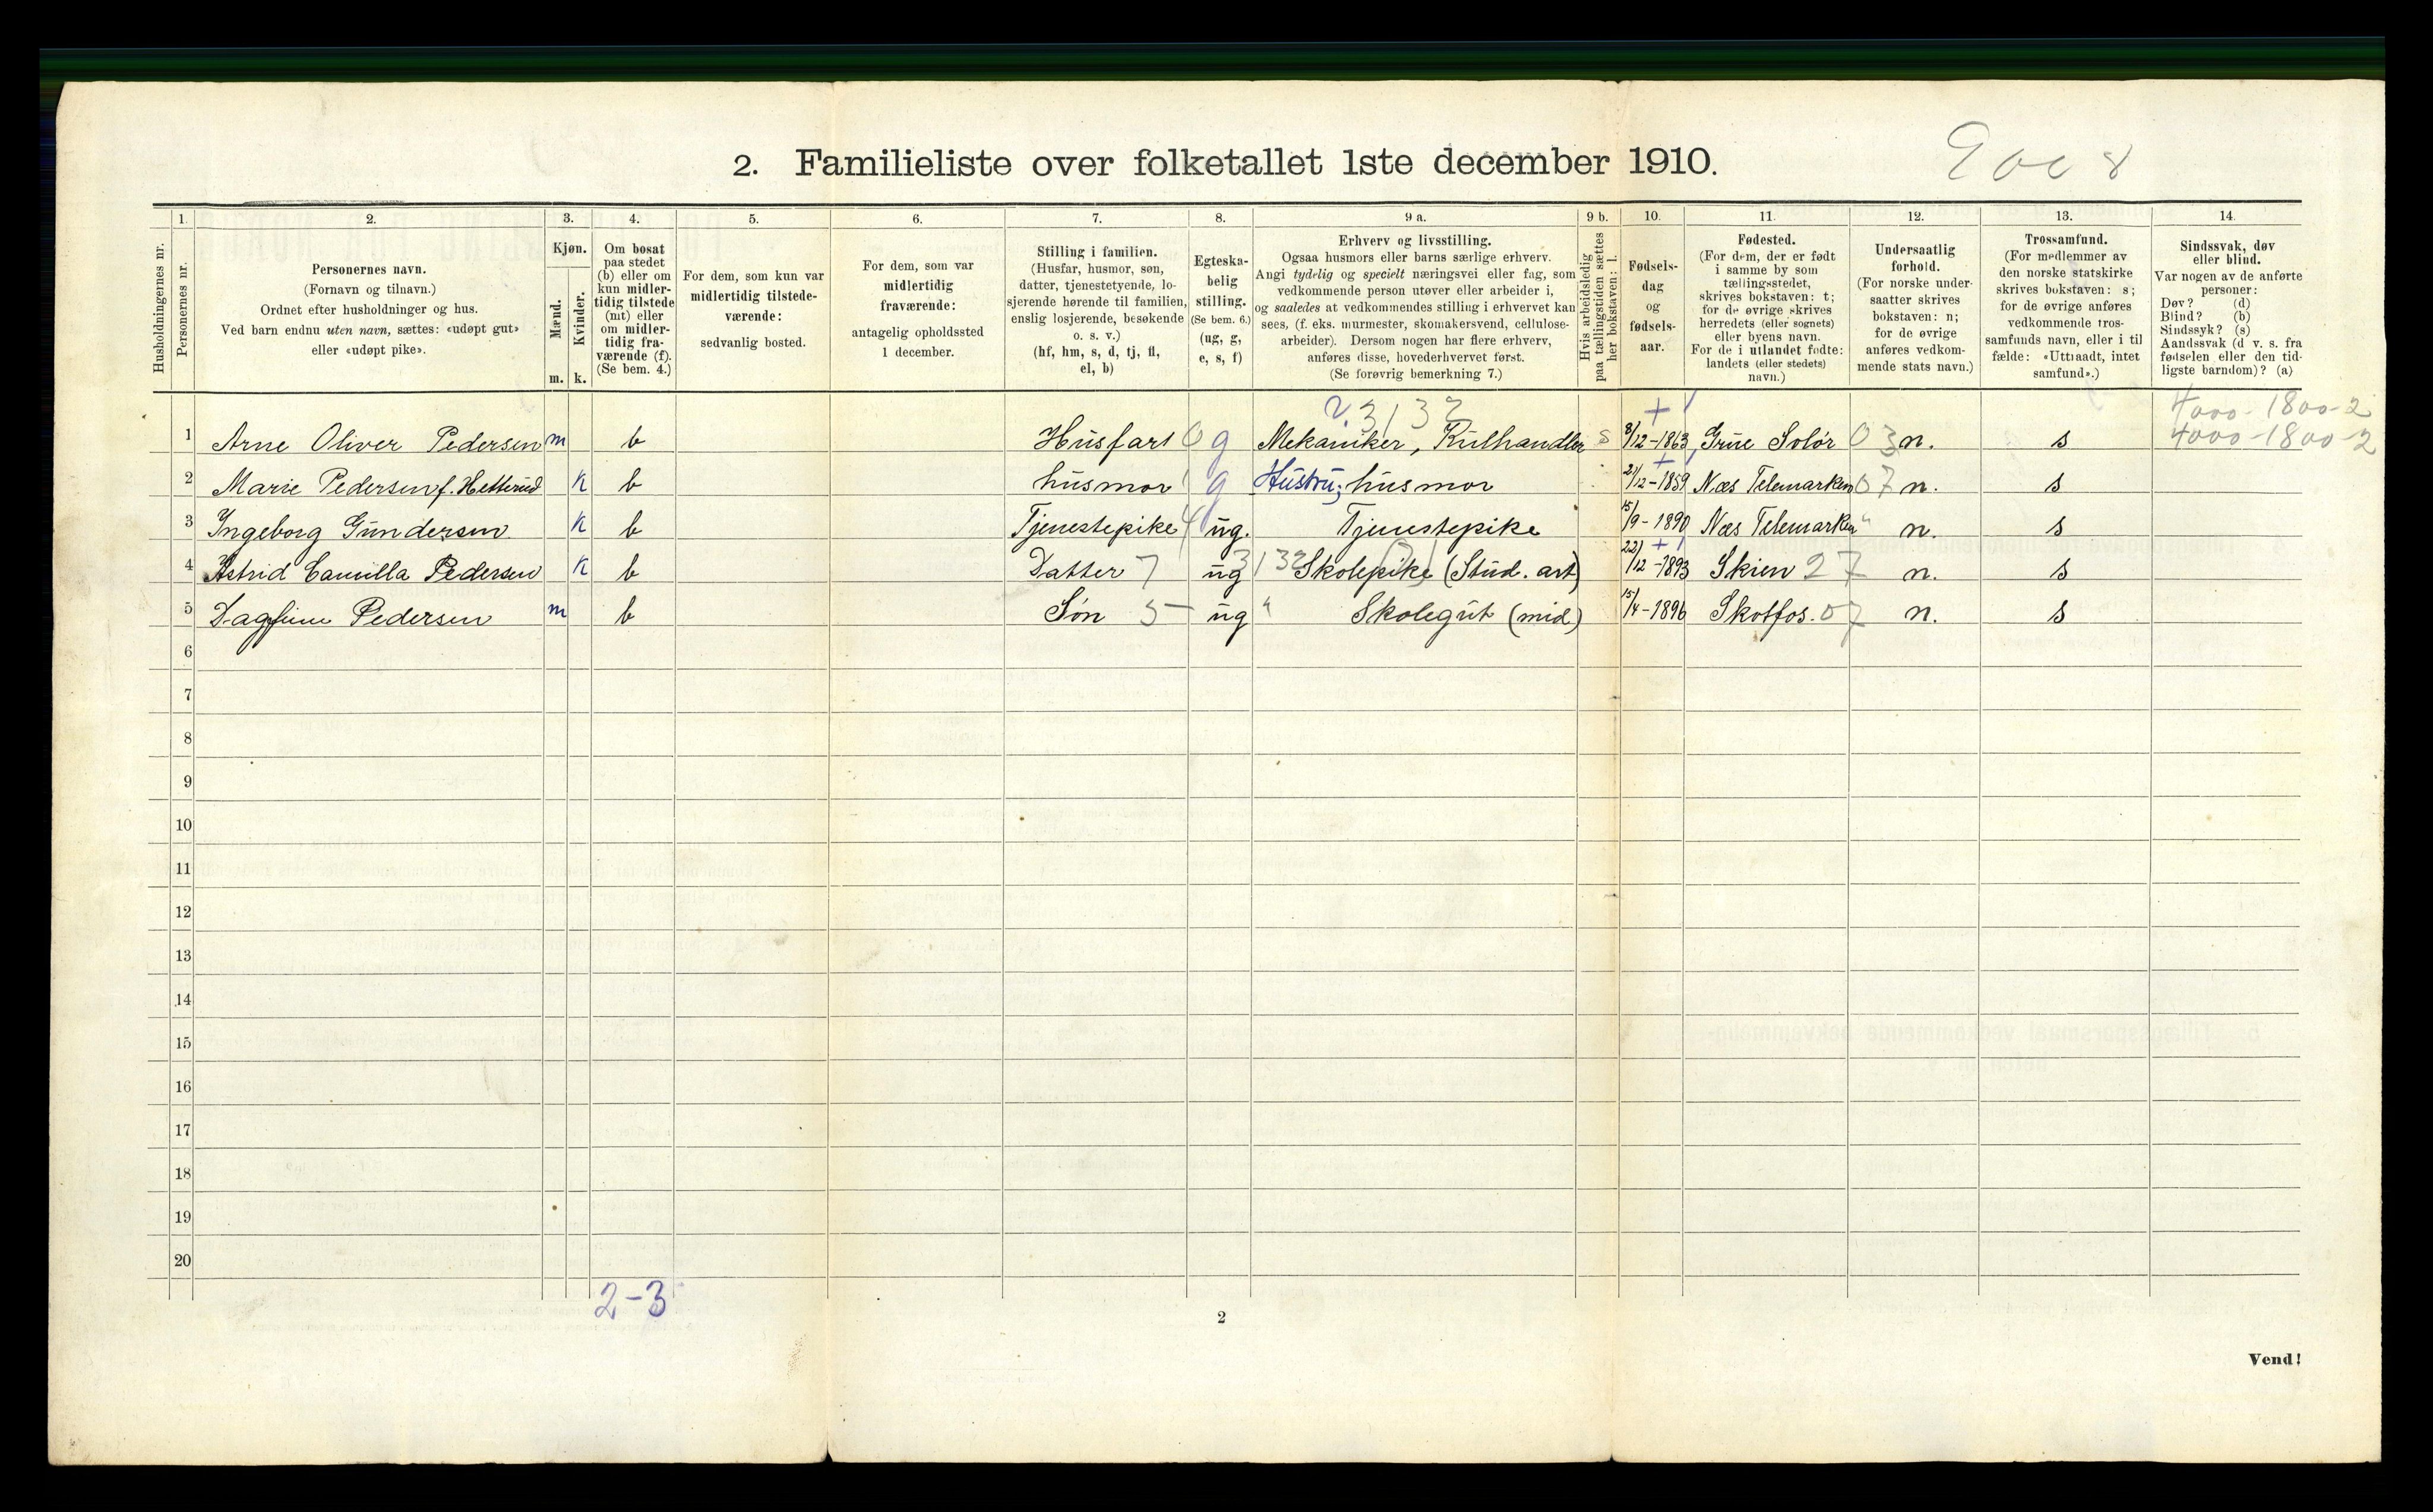 2. Familieliste over folketallet 1ste december 1910.
1. 2. 3. 4. 5. 6. 7. 8. 9 a. 9 b. 10. 11. 12. 13. 14.
Husholdningernes nr.
Personernes nr.
Personernes navn.
(Fornavn og tilnavn.)
Ordnet efter husholdninger og hus.
Ved barn endnu uten navn, sættes: «udøpt gut»
eller «udøpt pike».
Kjøn.
Mænd.
Kvinder.
m. k.
Om bosat
paa stedet
(b) eller om
kun midler-
tidig tilstede
(mt) eller
om midler-
tidig fra-
værende (f).
(Se bem. 4.)
For dem, som kun var
midlertidig tilstede-
værende:
sedvanlig bosted.
For dem, som var
midlertidig
fraværende:
antagelig opholdssted
1 december.
Stilling i familien.
(Husfar, husmor, søn,
datter, tjenestetyende, lo-
sjerende hørende til familien,
enslig losjerende, besøkende
o. s. v.)
(hf, hm, s, d, tj, fl,
el, b)
Egteska-
belig
stilling.
(Se bem. 6.)
(ug, g,
e, s, f)
Erhverv og livsstilling.
Ogsaa husmors eller barns særlige erhverv.
Angi tydelig og specielt næringsvei eller fag, som
vedkommende person utøver eller arbeider i,
og saaledes at vedkommendes stilling i erhvervet kan
sees, (f. eks. murmester, skomakersvend, cellulose-
arbeider). Dersom nogen har flere erhverv,
anføres disse, hovederhvervet først.
(Se forøvrig bemerkning 7.)
Hvis arbeidsledig
paa tællingstiden sættes
her bokstaven: l.
Fødsels-
dag
og
fødsels-
aar.
Fødested.
(For dem, der er født
i samme by som
tællingsstedet,
skrives bokstaven: t;
for de øvrige skrives
herredets (eller sognets)
eller byens navn.
For de i utlandet fødte:
landets (eller stedets)
navn.)
Undersaatlig
forhold.
(For norske under-
saatter skrives
bokstaven: n;
for de øvrige
anføres vedkom-
mende stats navn.)
Trossamfund.
(For medlemmer av
den norske statskirke
skrives bokstaven: s;
for de øvrige anføres
vedkommende tros-
samfunds navn, eller i til
fælde: «Uttraadt, intet
samfund».)
Sindssvak, døv
eller blind.
Var nogen av de anførte
personer:
Døv? (d)
Blind? (b)
Sindssyk? (s)
Aandssvak (d. v. s. fra
fødselen eller den tid-
ligste barndom)? (a)
23132
4000-1800-2
1 Arne Oliver Pedersen m b Husfar 0 g Mekaniker, Kulhandler s 8/12-1863 Grue Solør 03 n. s 4000-1800-2
2 Marie Pedersen f. Hetterud K b husmor g Hustru; husmor 21/12-1859 Næs Telemarken 07 n. s
3 Ingeborg Gundersen K b Tjenestepike 4 ug. Tjenestepike 15/9-1890 Næs Telemarken " n. s
4 Astrid Camilla Pedersen K b Datter 7 ug 3132 Skolepike (Stud. art) 22/12-1893 Skien 27 n. s
5 Dagfinn Pedersen m b Søn 5 ug " Skolegut (mid) 15/4-1896 Skotfos. 07 n. s
6
7
8
9
10
11
12
13
14
15
16
17
18
19
20
2-3
2
Vend!